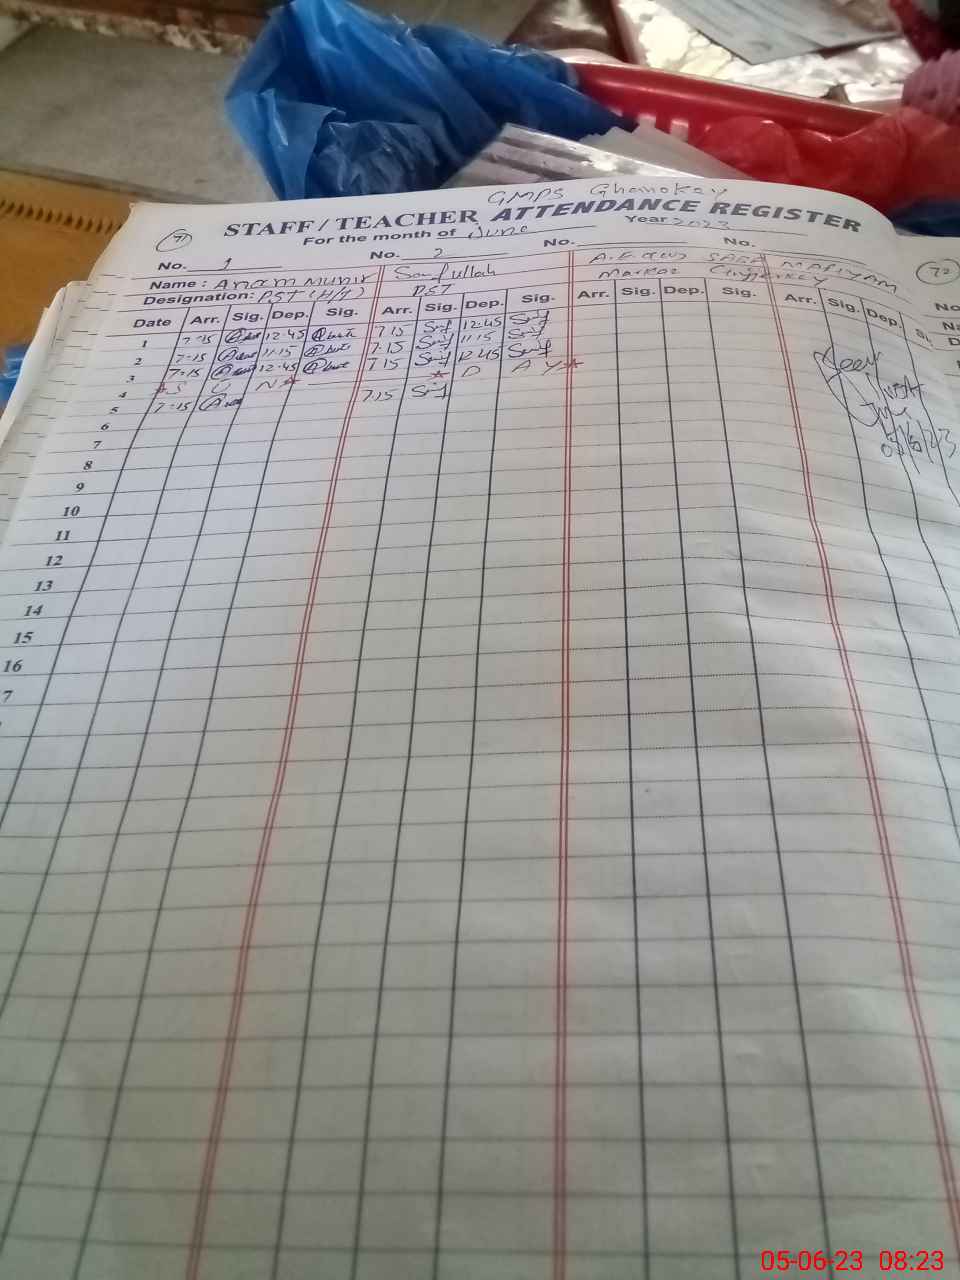 GMPS Ghanokay
STAFF / TEACHER ATTENDANCE REGISTER
71
For the month of June Year 2023
No. 1 No. 2 No. No.
72
Name : Anam Munir Saif ullah A.E.O (W) SARA MARIYAM
Designation: PST (H/T) PST Markaz
Date Arr. Sig. Dep. Sig. Arr. Sig. Dep. Sig. Arr. Sig. Dep. Sig. Arr. Sig. Dep.
1 7:15 12:45 7:15 Saif 12:45 Saif
2 7:15 11:15 7:15 Saif 11:15 Saif
3 7:15 12:45 7:15 Saif 12:45 Saif
4 S U N D A Y
5 7:15 7:15 Saif
6
7
8
9
10
11
12
13
14
15
16
7
Seen
Visit
05/6/23
05-06-23 08:23